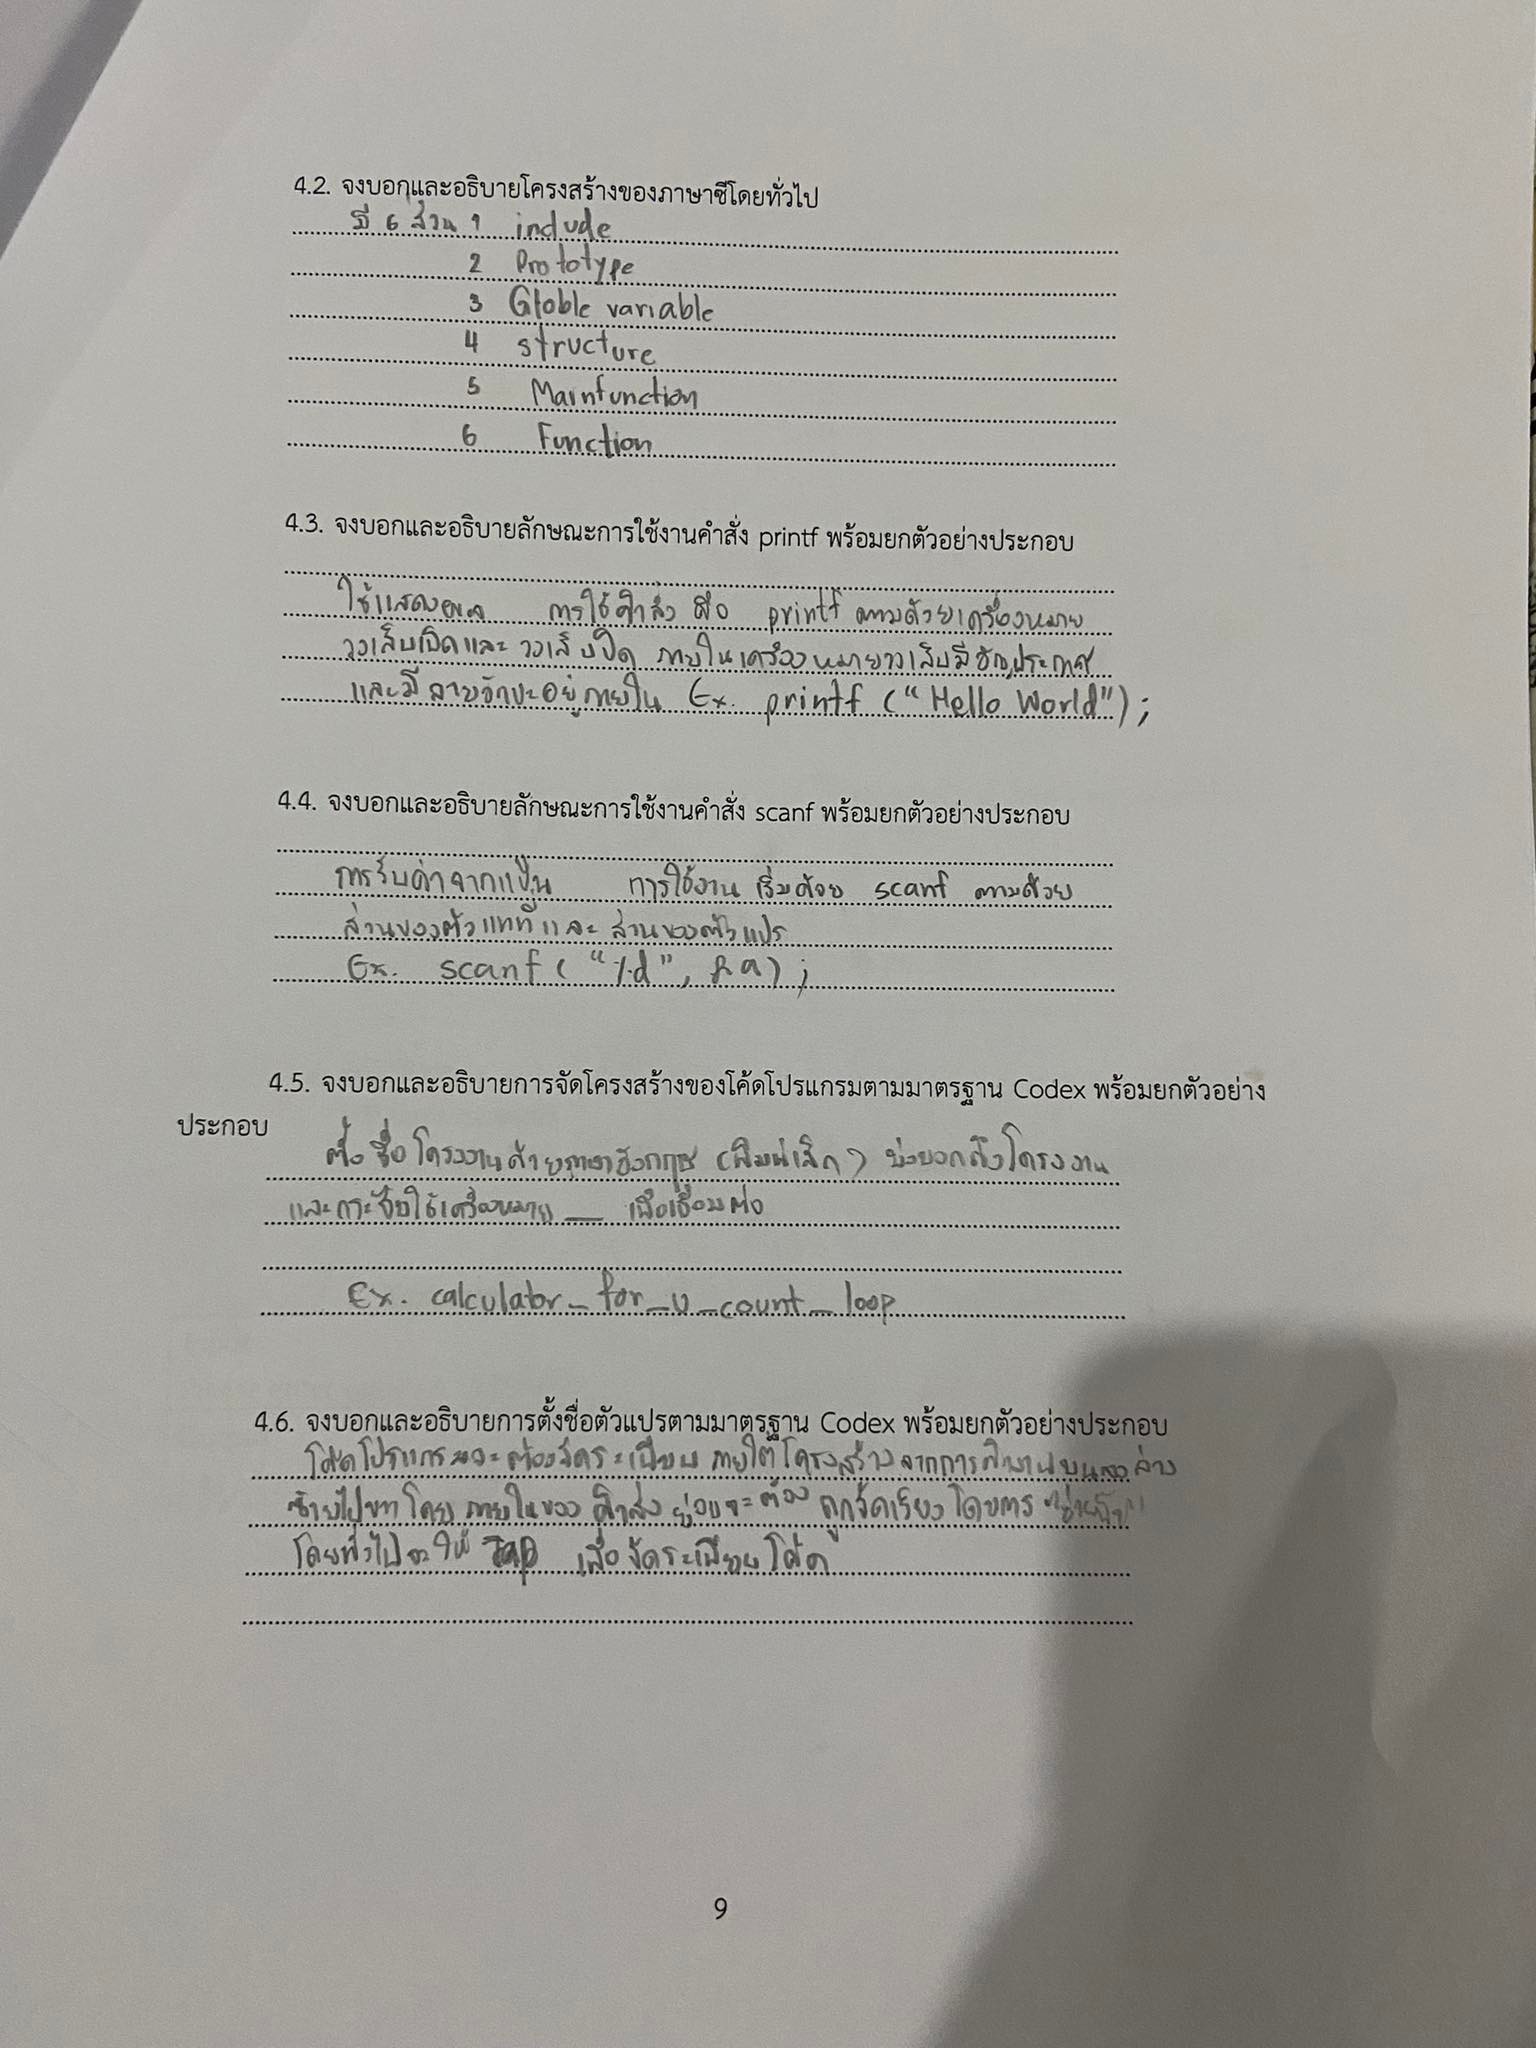 4.2. จงบอกและอธิบายโครงสร้างของภาษาซีโดยทั่วไป
มี 6 ส่วน 1 include
2 Prototype
3 Globle variable
4 structure
5 Mainfunction
6 Function
4.3. จงบอกและอธิบายลักษณะการใช้งานคำสั่ง printf พร้อมยกตัวอย่างประกอบ
ใช้แสดงผล การใช้คำสั่ง คือ printf ตามด้วยเครื่องหมาย
วงเล็บเปิดและ วงเล็บปิด ภายในเครื่องหมายวงเล็บมี
และมี อยู่ภายใน Ex. printf ("Hello World");
4.4. จงบอกและอธิบายลักษณะการใช้งานคำสั่ง scanf พร้อมยกตัวอย่างประกอบ
การรับค่าจากแป้น การใช้งาน เริ่มด้วย scanf ตามด้วย
ส่วนของตัวแทนที่ และ ส่วนของตัวแปร
Ex. scanf ( "%d", &a) ;
4.5. จงบอกและอธิบายการจัดโครงสร้างของโค้ดโปรแกรมตามมาตรฐาน Codex พร้อมยกตัวอย่าง
ประกอบ
ตั้งชื่อโครงงานด้วยภาษาอังกฤษ (พิมพ์เล็ก) บ่งบอกถึงโครงงาน
และกระชับใช้เครื่องหมาย _ เพื่อเชื่อมต่อ
Ex. calculator_for_u_count_loop
4.6. จงบอกและอธิบายการตั้งชื่อตัวแปรตามมาตรฐาน Codex พร้อมยกตัวอย่างประกอบ
โค้ดโปรแกรมจะต้องจัดระเบียบ ภายใต้โครงสร้างจากการ บนลงล่าง
ซ้ายไปขวา โดย ภายในของ คำสั่ง ย่อยจะต้อง ถูกจัดเรียง โดยการ
โดยทั่วไปจะใช้ Tap เพื่อจัดระเบียบโค้ด
9